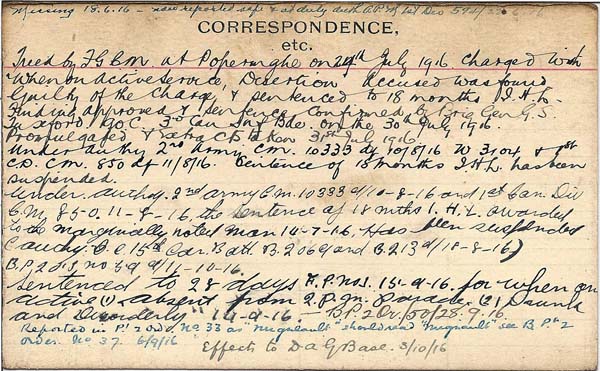 Missing 18.6.16 - now reported safe & at duty with A.P.M. 1st Div 594/
CORRESPONDENCE,
etc.
Tried by FGCM at Poperinghe on 29th July 1916. Charged with
When on active service, Desertion accused was found
Guilty of the Charge, & sentenced to 18 months I.H.L.
Finding approved & sentence confirmed by Brig Gen G.S.
Tuxford G.O.C. 3rd Can Inf Bde. on the 30th July 1916.
Promulgated & extracts taken 31st July 1916.
Under authy 2nd Army CM. 10333 d/ 10/8/16 & 1st
C.D. C.M. 850 d/ 11/8/16. Sentence of 18 months I.H.L. has been
suspended.
Under. authy. 2nd army C.M. 10333 d/10-8-16 and 1st Can. Div
C.M. 850. 11-8-16, the sentence of 18 mths I.H.L. awarded
to the marginally noted man 14-7-16. Has been suspended
Cauchy. O C. 15th Can. Batt. B. 2069 and B.213 d/18-8-16)
B.P. 2 No 59 d/11-10-16.
Sentenced to 28 days F.P. No 1. 15-9-16. for when on
active (1) absent from 2 P.M. Parade. (2) Drunk
and Disorderly 14-9-16. - B.P.2 Or/50/28.9.16.
Reported in P.2 ordr. No 33 as "Migneault" should read "Migneault" see B.P. 2
order. No 37. 6/9/16 Effects to D a G Base. 3/10/16